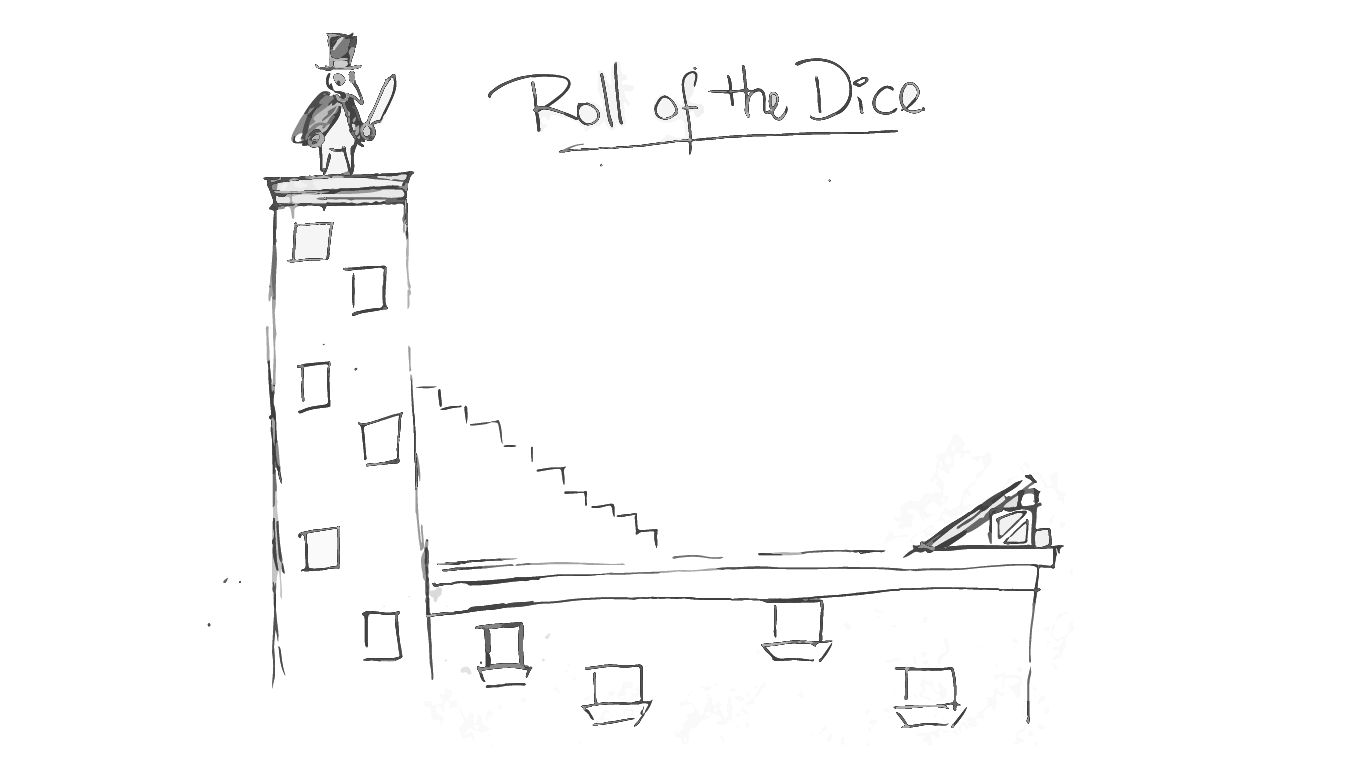 Roll of the Dice